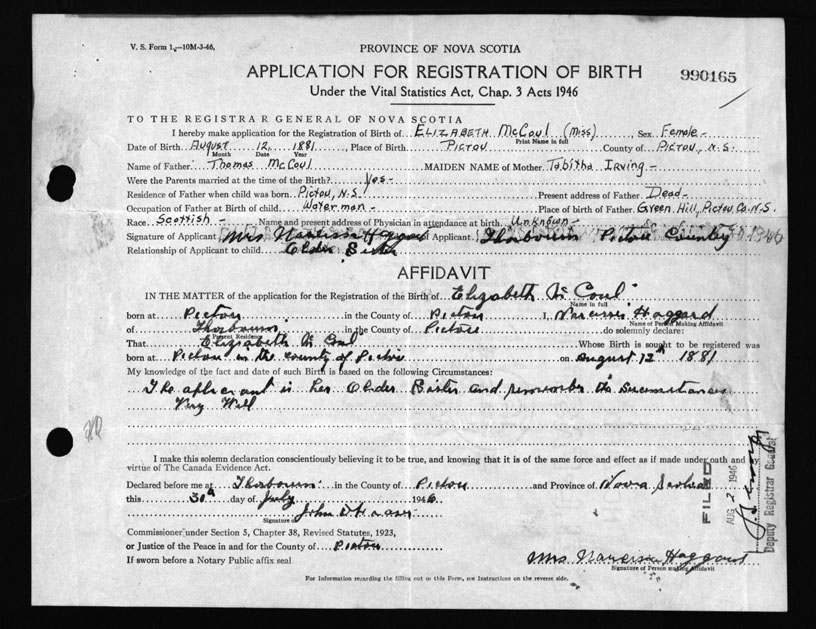 V. S. Form 1.—10M-3-46.
PROVINCE OF NOVA SCOTIA
APPLICATION FOR REGISTRATION OF BIRTH
990165
Under the Vital Statistics Act, Chap. 3 Acts 1946
TO THE REGISTRAR GENERAL OF NOVA SCOTIA
I hereby make application for the Registration of Birth of ELIZABETH McCoul (Miss) Sex Female
Print Name in full
Date of Birth August 12, 1881 Place of Birth PICTOU County of PICTOU, N.S.
Month Date Year
Name of Father Thomas McCoul MAIDEN NAME of Mother Tabitha Irving
Were the Parents married at the time of the Birth? Yes
Residence of Father when child was born Pictou, N.S. Present address of Father Dead
Occupation of Father at Birth of child Waterman Place of birth of Father Green Hill, Pictou Co. N.S.
Race Scottish Name and present address of Physician in attendance at birth Unknown
Signature of Applicant Mrs Narcissa Haggard of Applicant Thorbourn Pictou Country
Relationship of Applicant to child Older Sister
AFFIDAVIT
IN THE MATTER of the application for the Registration of Birth of Elizabeth McCoul
Name in full
born at Pictou in the County of Pictou I, Haggard
Name of Person Making Affidavit
of Thorbourn in the County of Pictou do solemnly declare:
Present Residence
That Elizabeth McCoul Whose Birth is sought to be registered was
born at Pictou in the county of Pictou on August 12th 1881
My knowledge of the fact and date of such Birth is based on the following Circumstances:
The is her Older Sister and the
Very Well
I make this solemn declaration conscientiously believing it to be true, and knowing that it is of the same force and effect as if made under oath and
virtue of The Canada Evidence Act.
Declared before me at Thorbourn in the County of Pictou and Province of Nova Scotia
this 30th day of July 1946
Signature of John D Fraser
Commissioner under Section 5, Chapter 38, Revised Statutes, 1923,
or Justice of the Peace in and for the County of Pictou
If sworn before a Notary Public affix seal
Mrs Narcissa Haggard
Signature of Person making Affidavit
For Information regarding the filling out of this Form, see Instructions on the reverse side.
FILED
AUG 2 1946
Deputy Registrar General